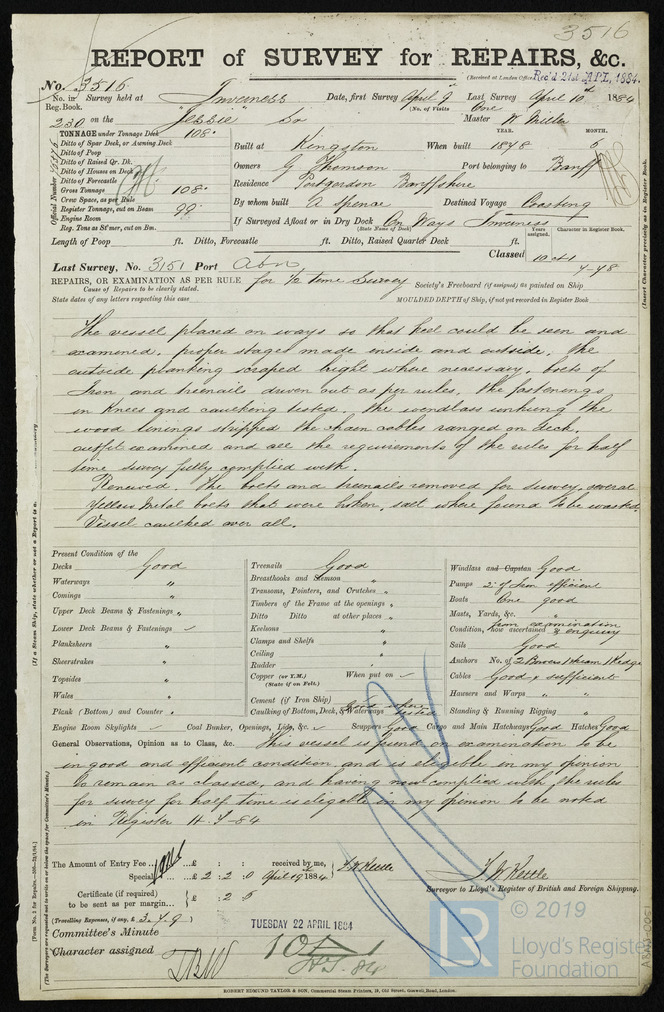 3516
REPORT of SURVEY for REPAIRS, &c.
(Received at London Office Rec'd 21st APL, 1884.
No. 3516
No. in Survey held at Inverness Date, first Survey April 9 Last Survey April 10th 1884
Reg. Book. (No. of Visits One
230 on the "Jessie" Sr Master W Miller
TONNAGE under Tonnage Deck 108.
Ditto of Spar Deck, or Awning Deck
Ditto of Poop
Ditto of Raised Qr. Dk.
Ditto of Houses on Deck
Ditto of Forecastle
Gross Tonnage 108.
Crew Space, as per Rule
Register Tonnage, cut on Beam 99.
Engine Room
Reg. Tons as St'mer, cut on Bm.
Official Number
YEAR. MONTH.
Built at Kingston When built 1878 5
Owners G Thomson Port belonging to Banff
Residence Portgordon Banffshire
By whom built A Spence Destined Voyage Coasting
If Surveyed Afloat or in Dry Dock On Ways Inverness
(State Name of Dock)
Years assigned. Character in Register Book.
Length of Poop ft. Ditto, Forecastle ft. Ditto, Raised Quarter Deck ft.
Classed 10 A 1
4-78
Last Survey, No. 3151 Port Abn
REPAIRS, OR EXAMINATION AS PER RULE for 1/2 time Survey Society's Freeboard (if assigned) as painted on Ship
Cause of Repairs to be clearly stated.
State dates of any letters respecting this case MOULDED DEPTH of Ship, if not yet recorded in Register Book
(Insert Character precisely as in Register Book.
The vessel placed on ways so that keel could be seen and
examined, proper stages made inside and outside. The
outside planking scraped bright where necessary, bolts of
Iron and treenails driven out as per rules, the fastenings
in Knees and caulking tested. The windlass unhung the
wood linings stripped the chain cables ranged on deck.
outfit examined and all the requirements of the rules for half
time survey fully complied with.
Renewed. The bolts and treenails removed for survey, several
Yellow Metal bolts that were broken, salt where found to be wasted.
Vessel caulked over all.
(If a Steam Ship, state whether or not a Report is a
Present Condition of the
Decks Good
Waterways "
Comings "
Upper Deck Beams & Fastenings "
Lower Deck Beams & Fastenings -
Planksheers "
Sheerstrakes "
Topsides "
Wales "
Plank (Bottom) and Counter "
Treenails Good
Breasthooks and Stemson "
Transoms, Pointers, and Crutches "
Timbers of the Frame at the openings "
Ditto Ditto at other places "
Keelsons "
Clamps and Shelfs "
Ceiling "
Rudder "
Copper (or Y.M.) When put on -
(State if on Felt.)
Cement (if Iron Ship)
Caulking of Bottom, Deck, & Waterways Good where tested
Windlass and Capstan Good
Pumps 2 of Iron efficient
Boats One good
Masts, Yards, &c. "
Condition, how ascertained from examination & enquiry
Sails Good
Anchors No. of 2 Bowers 1 Stream 1 Kedge
Cables Good & sufficient
Hawsers and Warps " "
Standing & Running Rigging "
Engine Room Skylights - Coal Bunker, Openings, Lids, &c. - Scuppers Good Cargo and Main Hatchways Good Hatches Good
General Observations, Opinion as to Class, &c. This vessel is found on examination to be
in good and efficient condition and is eligible in my opinion
to remain as classed, and having now complied with the rules
for survey for half time is eligible in my opinion to be noted
in Register H.T-84
The Amount of Entry Fee .. £ : : received by me,
Special ... £ 2 : 2 : 0 April 19 1884 J W Kettle
Certificate (if required) £ : 2 : 5
to be sent as per margin...
(Travelling Expenses, if any, £ 3. 4. 9)
J. W Kettle
Surveyor to Lloyd's Register of British and Foreign Shipping.
Committee's Minute TUESDAY 22 APRIL 1884
Character assigned 10 A 1
H.T. 84
(Form No. 2 for Repairs.
(The Surveyors are requested not to write on or below the space for Committee's Minute.)
© 2019
LR
Lloyd's Register
Foundation
ROBERT EDMUND TAYLOR & SON, Commercial Steam Printers, 19, Old Street, Goswell Road, London.